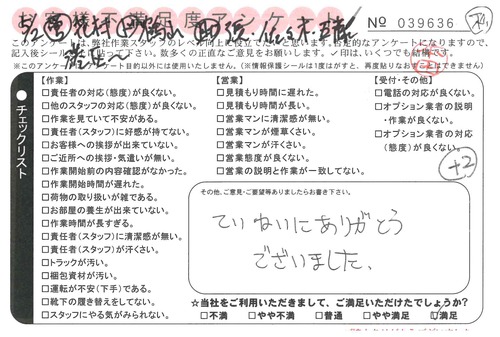 足度ア
No 039636
このアンケートは、弊社作業スタッフのレベル向上に役立てたいと思います。否定的なアンケートになりますので、
記入後シールをお貼り下さい。数多くの正直なご意見をお待ちしております。✓印は、いくつでも結構です。
※このアンケート目的以外には使用いたしません。(※情報保護シールは1度はがすと、再度貼りなおすことはできません)
チェックリスト
【作業】
□責任者の対応(態度)が良くない。
□他のスタッフの対応(態度)が良くない。
□作業を見ていて不安がある。
□責任者(スタッフ)に好感が持てない。
□お客様への挨拶が出来ていない。
□ご近所への挨拶・気遣いが無い。
□作業開始前の内容確認がなかった。
□作業開始時間が遅れた。
□荷物の取り扱いが雑である。
□お部屋の養生が出来ていない。
□作業時間が長すぎる。
□責任者(スタッフ)に清潔感が無い。
□責任者(スタッフ)が汗くさい。
□トラックが汚い。
□梱包資材が汚い。
□運転が不安(下手)である。
□靴下の履き替えをしてない。
□スタッフにやる気がみられない。
【営業】
□見積もり時間に遅れた。
□見積もり時間が長い。
□営業マンに清潔感が無い。
□営業マンが煙草くさい。
□営業マンが汗くさい。
□営業態度が良くない。
□営業の説明と作業が一致してない。
【受付・その他】
□電話の対応が良くない。
□オプション業者の説明
・作業が良くない。
□オプション業者の対応
(態度)が良くない。
+2
その他、ご意見・ご要望等ありましたらお書き下さい。
ていねいにありがとう
ございました、
☆当社をご利用いただきまして、ご満足いただけてでしょうか?
□不満 □やや不満 □普通 □やや満足 ☑満足